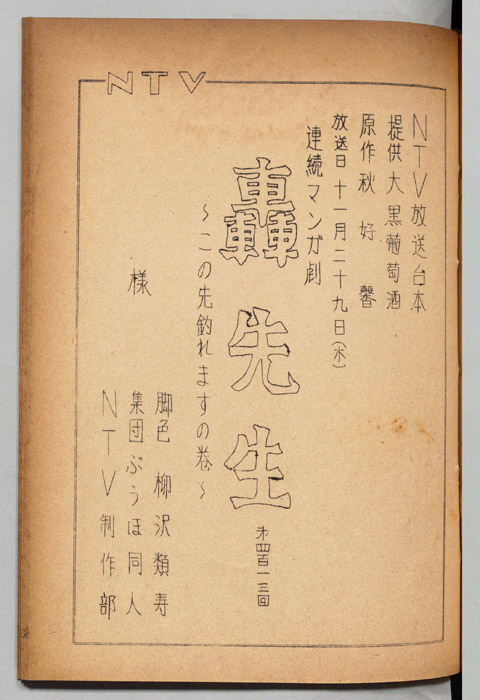 NTV
NTV放送台本
提供大黒葡萄酒
原作秋 好 馨
放送日 十一月二十九日(木)
連続マンガ劇
轟先生
第四百一三回
~この先釣れますの巻~
様
脚色 柳沢類寿
集団ぶうほ同人
NTV制作部